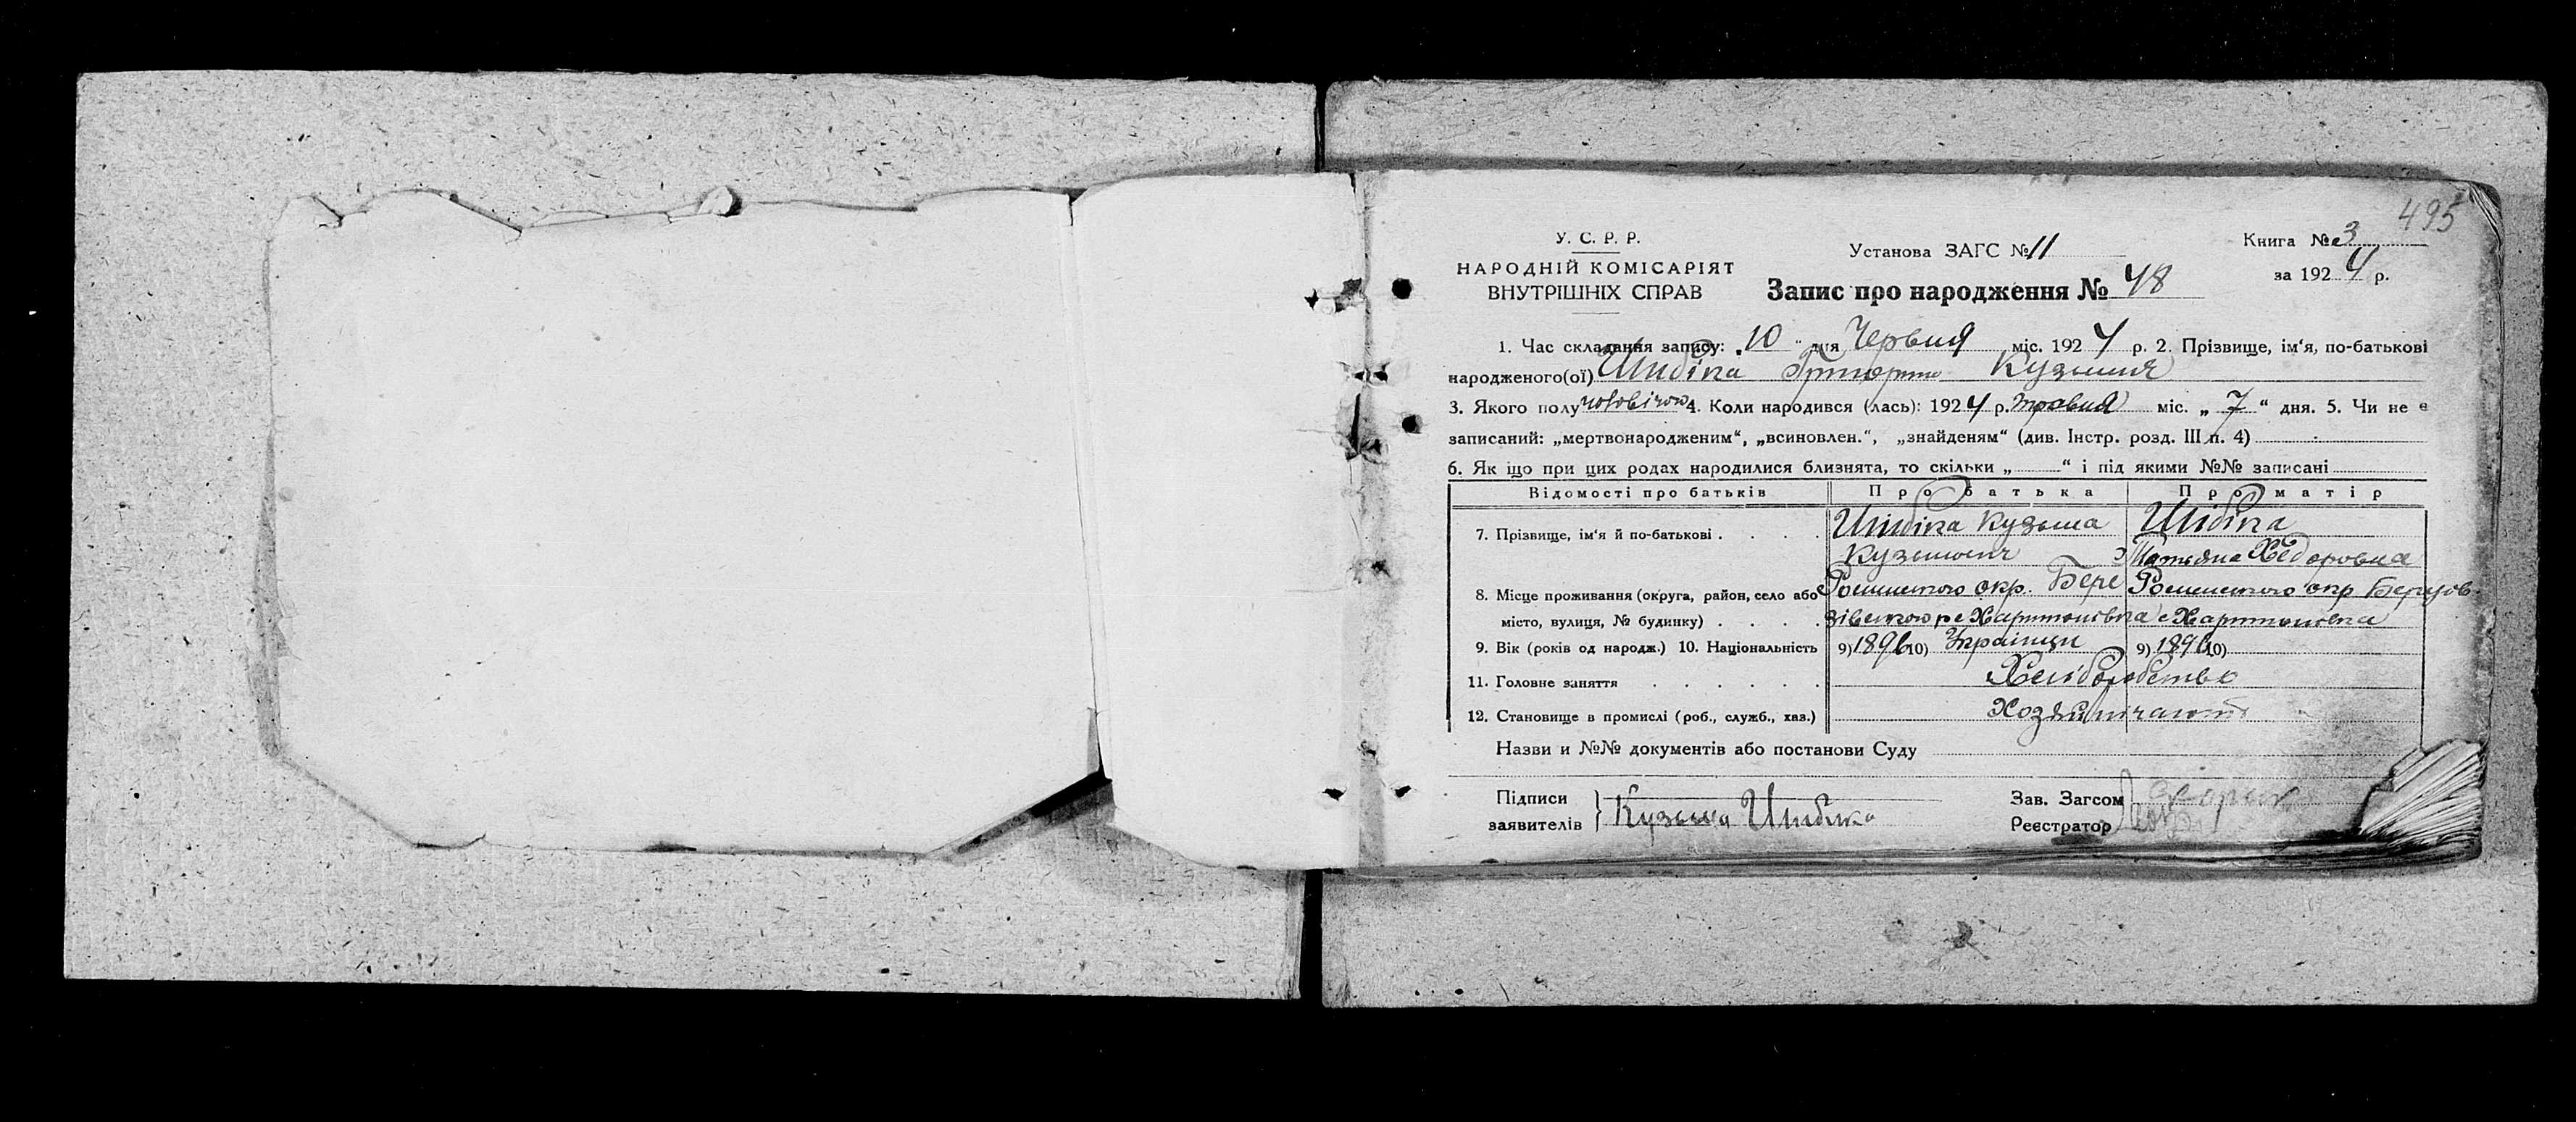 495
У. С. Р. Р.
НАРОДНІЙ КОМІСАРІЯТ
ВНУТРІШНІХ СПРАВ
Установа ЗАГС № 11
Книга № 3
за 1924 р.
Запис про народження № 48
1. Час складання запису: „10“ дня Червня міс. 1924 р. 2. Прізвище, ім‘я, по-батькові
народженого(ої) Шибіка Кузьмич
3. Якого полу чоловічого 4. Коли народився (лась): 1924 р. травня міс. „7“ дня. 5. Чи не є
записаний: „мертвонародженим“, „всиновлен.“, „знайденям“ (див. Інстр. розд. III п. 4)
6. Як що при цих родах народилися близнята, то скільки „ “ і під якими №№ записані
Відомості про батьків Про батька Про матір
7. Прізвище, ім‘я й по-батькові Шибіка Кузьма Шибіка
Кузьмович Татьяна Хведоровна
8. Місце проживання (округа, район, село або Роменского окр. Бере Роменского окр Березов
місто, вулиця, № будинку) зівского р с Харитонівка с Харитонівка
9. Вік (років од народж.) 10. Національність 9) 1896 10) Украінци 9) 1896 10)
11. Головне заняття Хліборобство
12. Становище в промислі (роб., служб., хаз.) Хозяйнічают
Назви и №№ документів або постанови Суду
Підписи
заявителів Кузьма Шибика
Зав. Загсом
Реєстратор